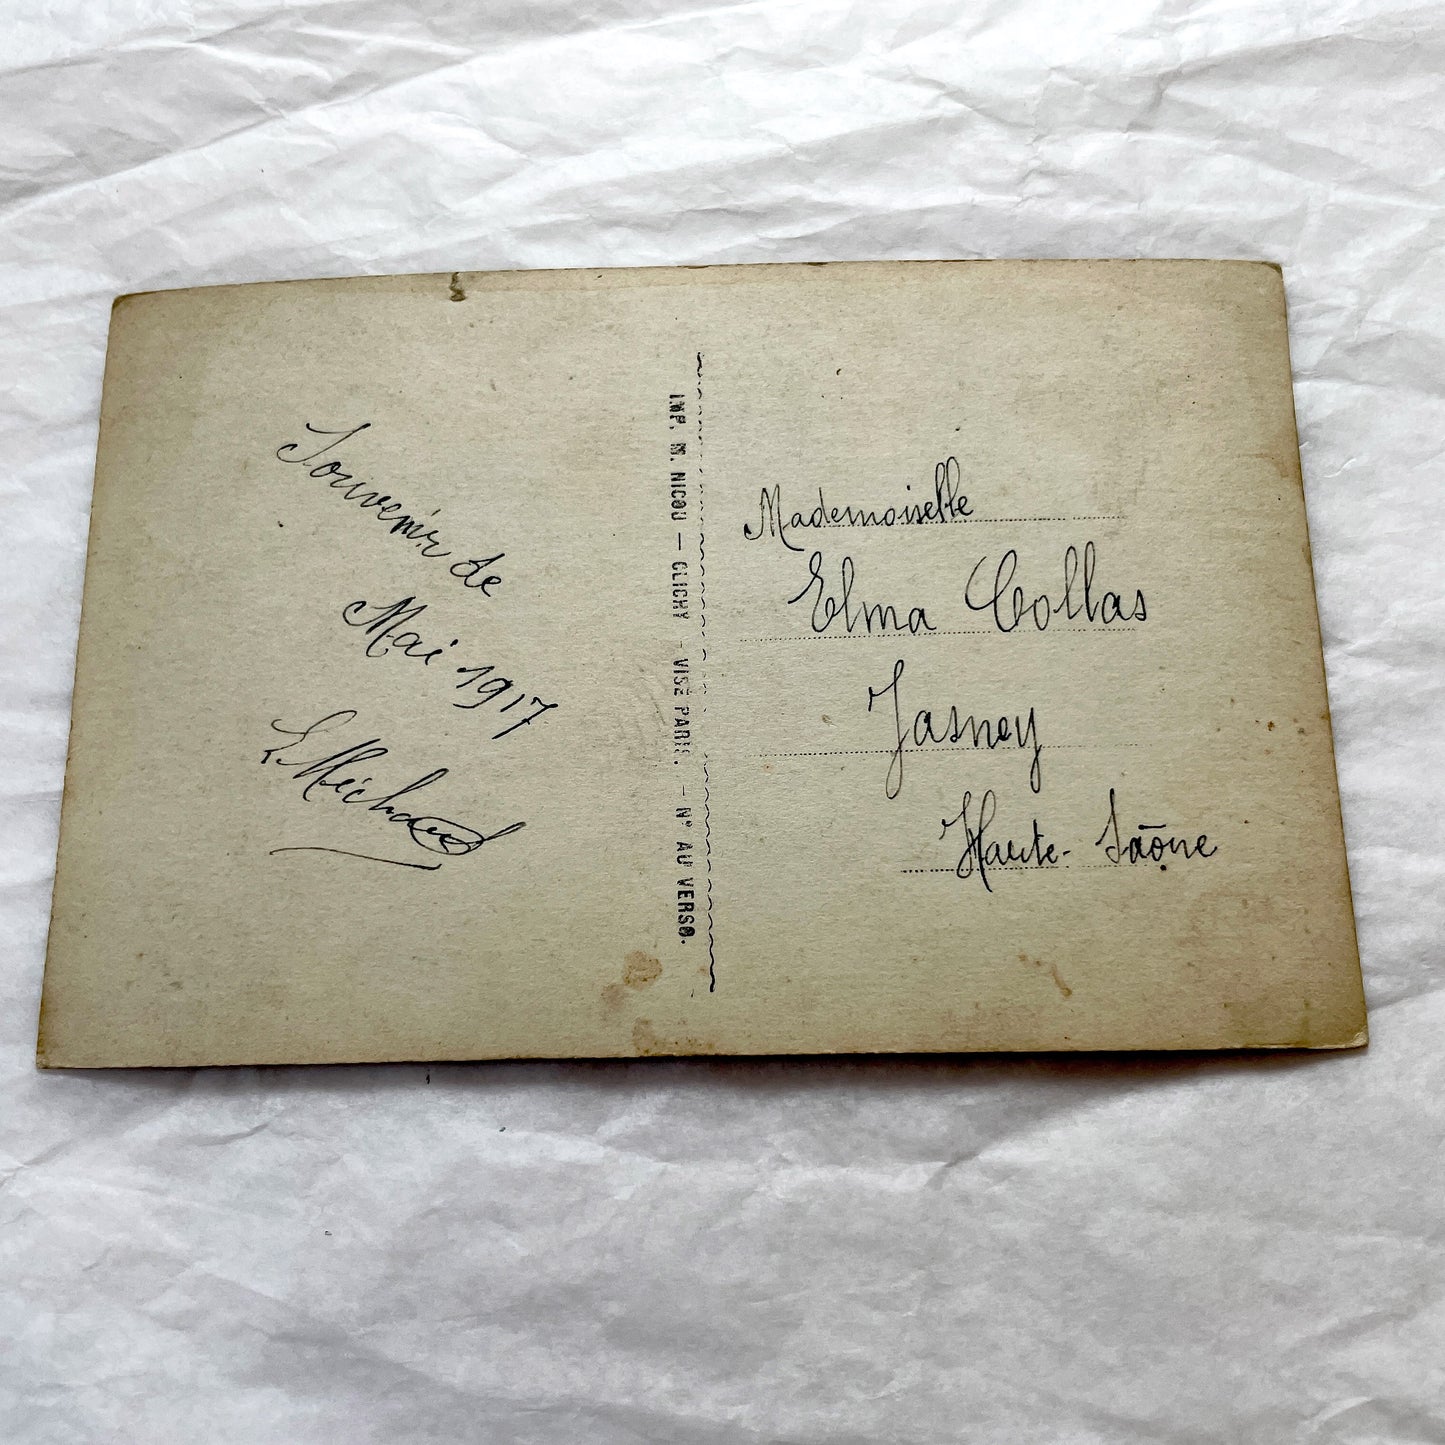 Souvenir de
Mai 1917
L Michaud
IMP. M. NICOU — CLICHY - VISÉ PARIS. - N° AU VERSO.
Mademoiselle
Elma Collas
Jasney
Haute-Saône